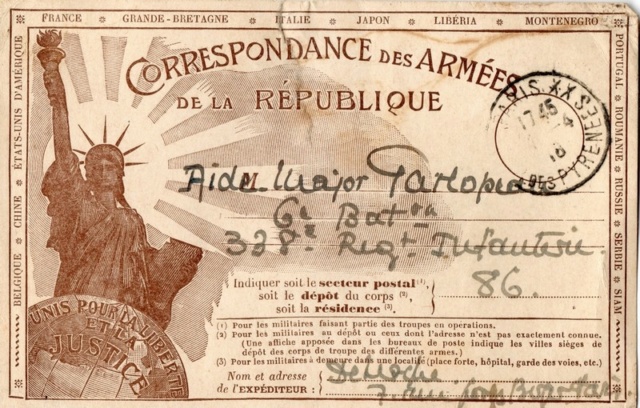 FRANCE * GRANDE-BRETAGNE * ITALIE * JAPON * LIBÉRIA * MONTENEGRO
BELGIQUE * CHINE * ÉTATS-UNIS D'AMÉRIQUE
PORTUGAL * ROUMANIE * RUSSIE * SERBIE * SIAM
CORRESPONDANCE DES ARMÉES
DE LA RÉPUBLIQUE
PARIS XX
17 45
4
18
R. DES PYRENEES
M. Aide Major
6e Batón
328e Regt Infanterie
86.
UNIS POUR LA LIBERTÉ
ET LA
JUSTICE
Indiquer soit le secteur postal (1),
soit le dépôt du corps (2),
soit la résidence (3).
(1) Pour les militaires faisant partie des troupes en operations.
(2) Pour les militaires au dépôt ou ceux dont l'adresse n'est pas exactement connue.
(Une affiche apposée dans les bureaux de poste indique les villes sièges de
dépôt des corps de troupe des différentes armes.)
(3) Pour les militaires à demeure dans une localité (place forte, hôpital, garde des voies, etc.)
Nom et adresse
de l'EXPÉDITEUR :
7